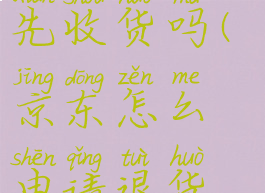 先收货吗(
jīng dōng zěn me
京东怎么
shēn qǐng tuì huò
申请退货